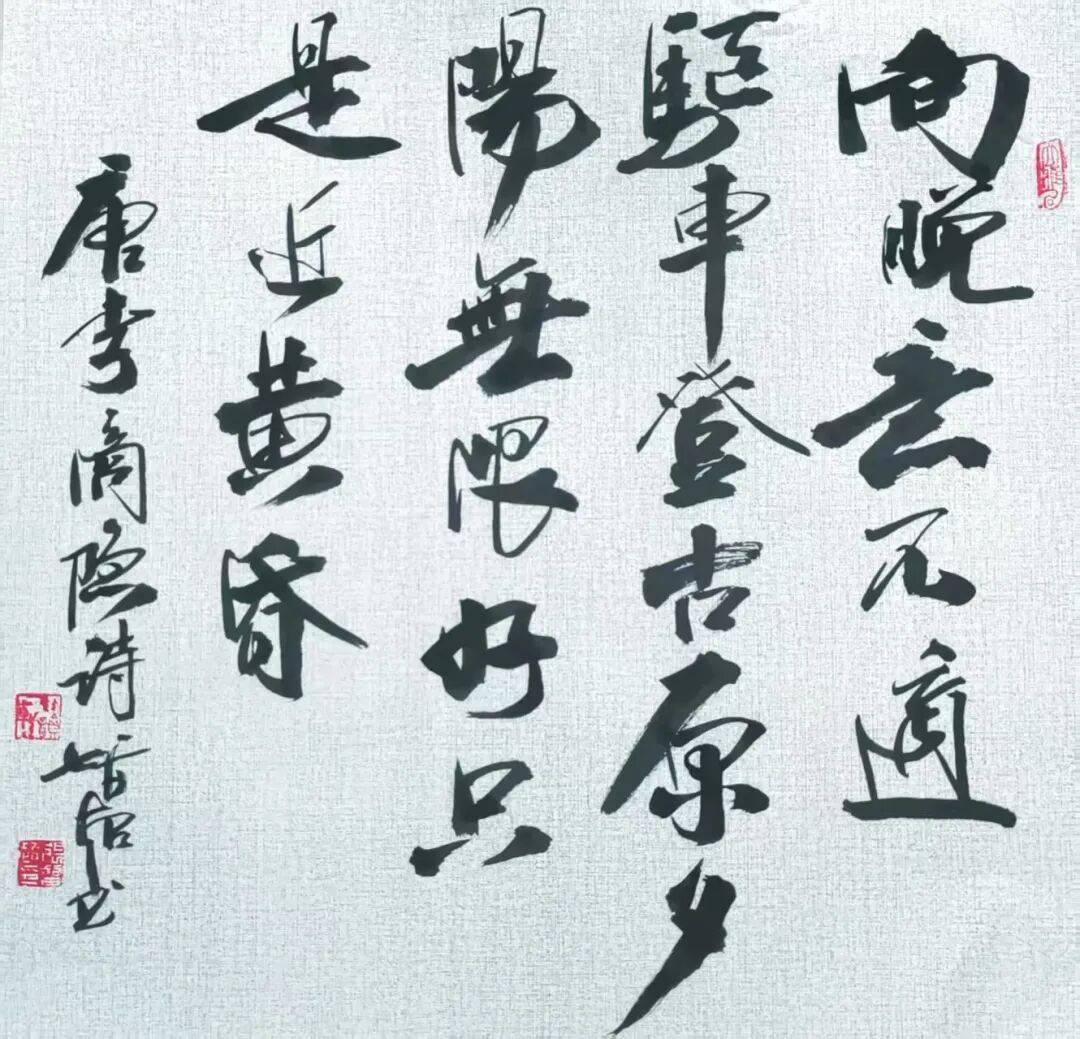 向晚意不適
驅車登古原夕
陽無限好只
是近黄昏
唐李商隐诗
书